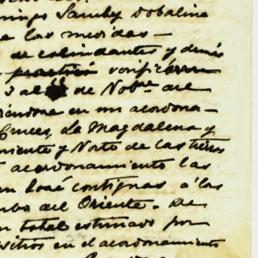 mingo Sanchez Dobaline
a las medidas —
de colindantes y demás
practicó verificáron
3 al de Nobre. del
en un acordona-
Cruces, La Magdalena y
niente y Norte de las tierras
acordonamiento las
n José contiguas á las
mbo del Oriente. De
n total estimado por
sitios en el acordonamiento